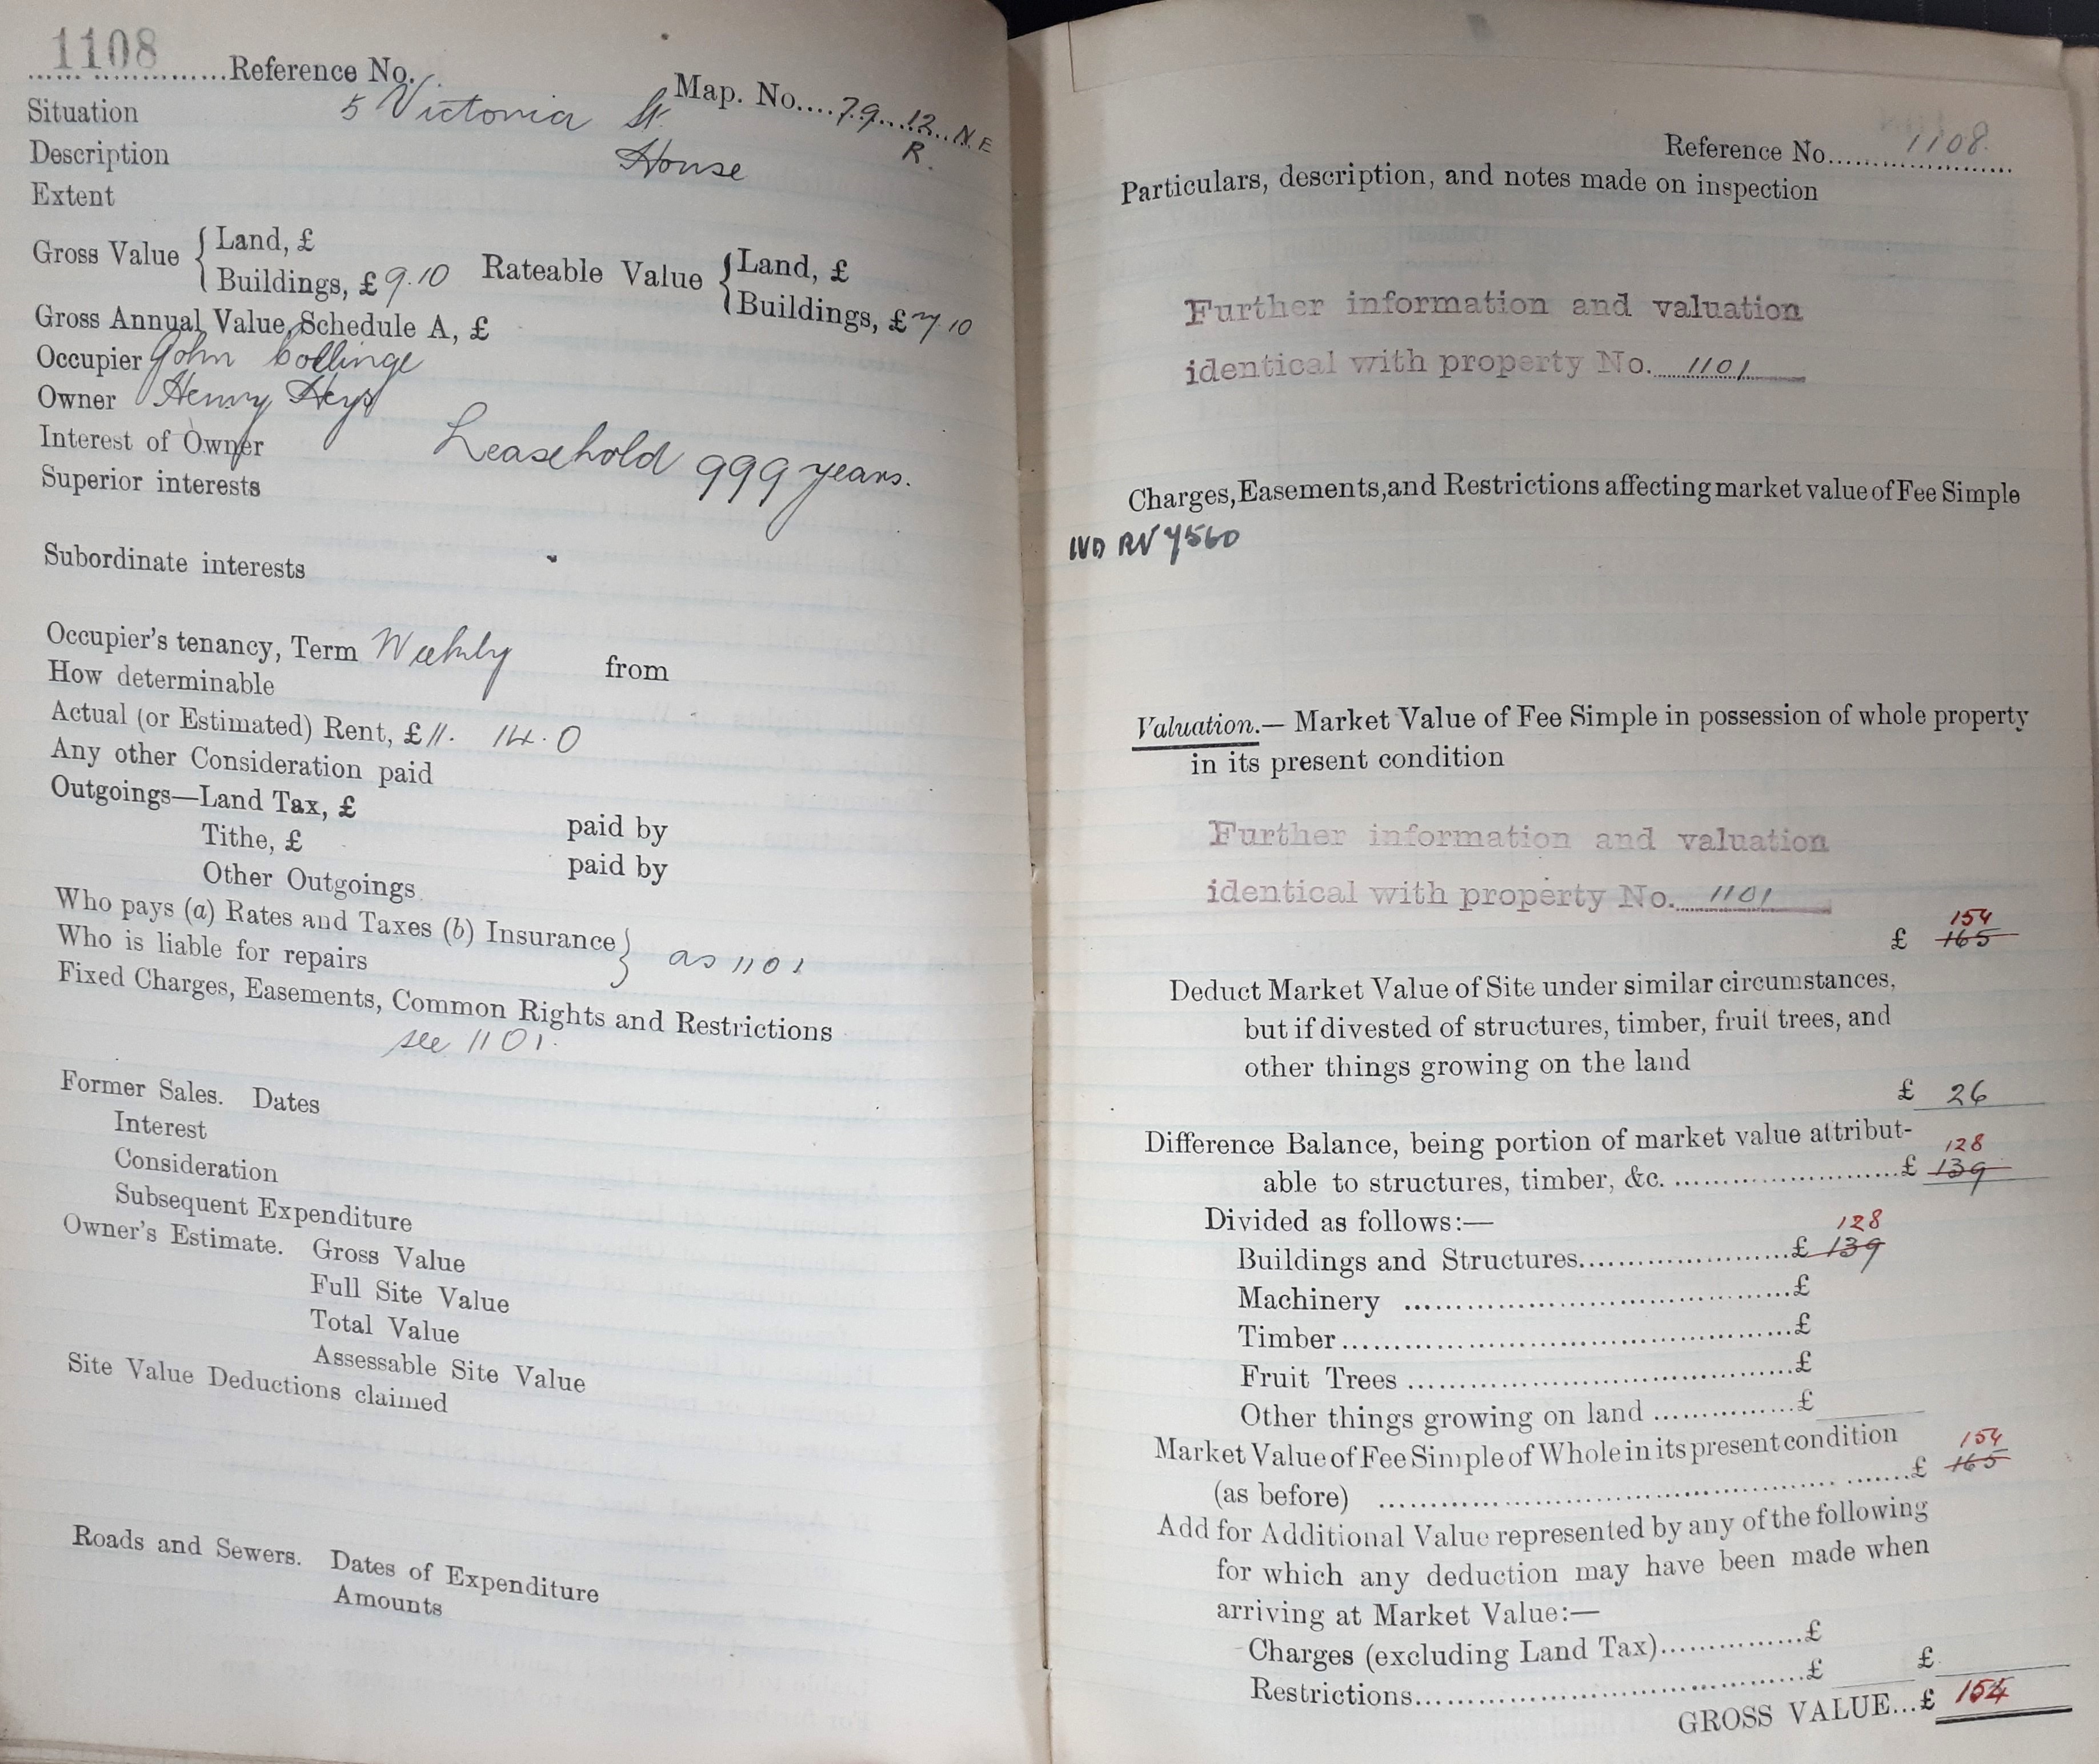 1108
Reference No.
Map. No. 79 12 N.E
R.
Situation 5 Victoria St.
Description House
Extent
Gross Value { Land, £
Buildings, £ 9.10
Rateable Value { Land, £
Buildings, £ 7.10
Gross Annual Value, Schedule A, £
Occupier John Collinge
Owner Henry Heys
Interest of Owner Leasehold 999 years.
Superior interests
Subordinate interests
Occupier's tenancy, Term Weekly from
How determinable
Actual (or Estimated) Rent, £ 11. 14. 0
Any other Consideration paid
Outgoings—Land Tax, £ paid by
Tithe, £ paid by
Other Outgoings
Who pays (a) Rates and Taxes (b) Insurance }
Who is liable for repairs } as 1101
Fixed Charges, Easements, Common Rights and Restrictions
see 1101.
Former Sales. Dates
Interest
Consideration
Subsequent Expenditure
Owner's Estimate. Gross Value
Full Site Value
Total Value
Assessable Site Value
Site Value Deductions claimed
Roads and Sewers. Dates of Expenditure
Amounts
Reference No. 1108.
Particulars, description, and notes made on inspection
Further information and valuation
identical with property No. 1101
Charges, Easements, and Restrictions affecting market value of Fee Simple
IVD RV 7560
Valuation.— Market Value of Fee Simple in possession of whole property
in its present condition
Further information and valuation
identical with property No. 1101
154
£ 165
Deduct Market Value of Site under similar circumstances,
but if divested of structures, timber, fruit trees, and
other things growing on the land
£ 26
Difference Balance, being portion of market value attribut-
128
able to structures, timber, &c. £ 139
Divided as follows:—
128
Buildings and Structures £ 139
Machinery £
Timber £
Fruit Trees £
Other things growing on land £
Market Value of Fee Simple of Whole in its present condition
154
(as before) £ 165
Add for Additional Value represented by any of the following
for which any deduction may have been made when
arriving at Market Value:—
Charges (excluding Land Tax) £
Restrictions £ £
GROSS VALUE...£ 154